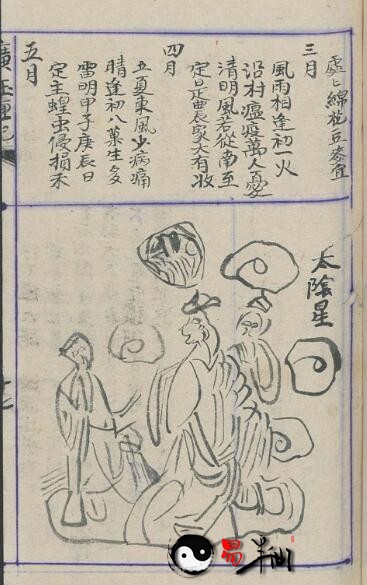 處〻綿花豆麥宜
三月
風雨相逢初一火
沿村瘟疫萬人憂
清明風若從南至
定是農家大有收
四月
立夏東風少病痛
晴逢初八菓生多
雷明甲子庚辰日
定主蝗虫侵損禾
五月
太陰星
易半仙